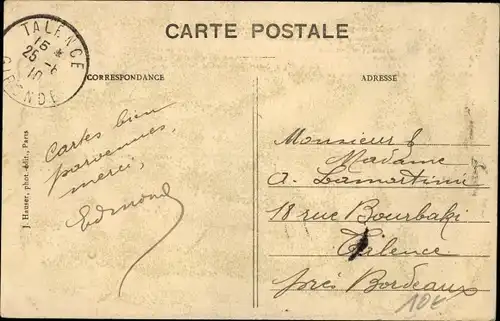 CARTE POSTALE
TALENCE
15 *
25 -6
10
GIRONDE
CORRESPONDANCE
ADRESSE
J. Hauser, phot.-édit., Paris
Cartes bien
parvenues,
merci,
Edmond
Monsieur &
Madame
A. Lamartinie
18 rue Bourbaki
Talence
près Bordeaux
10€